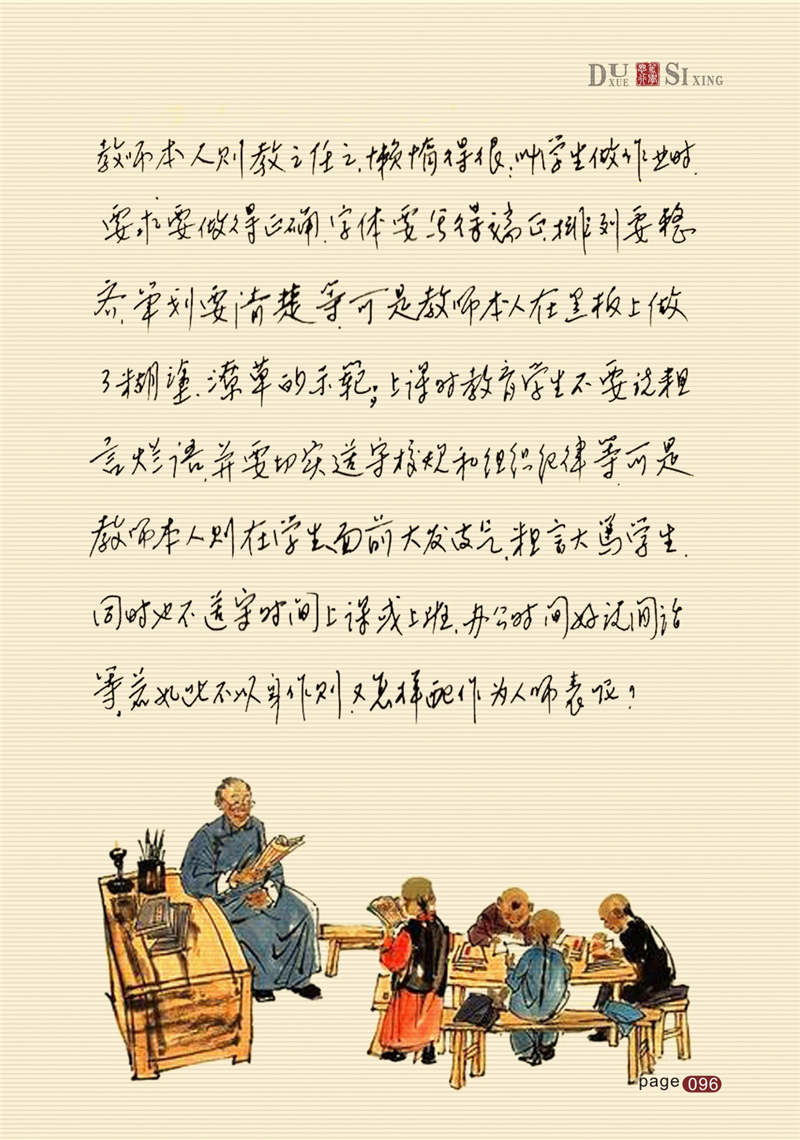 DU XUE 笃学思行 SI XING
教师本人则教之任之,懒惰得很;叫学生做作业时,
要求要做得正确,字体要写得端正,排列要整
齐,笔划要清楚等,可是教师本人在黑板上做
了糊涂、潦草的示范;上课时教育学生不要说粗
言烂语,并要切实遵守校规和组织纪律等,可是
教师本人则在学生面前大发皮气,粗言大骂学生,
同时也不遵守时间上课或上班,办公时间好说闲话
等,若如此不以身作则,又怎样配作为人师表呢?
page 096